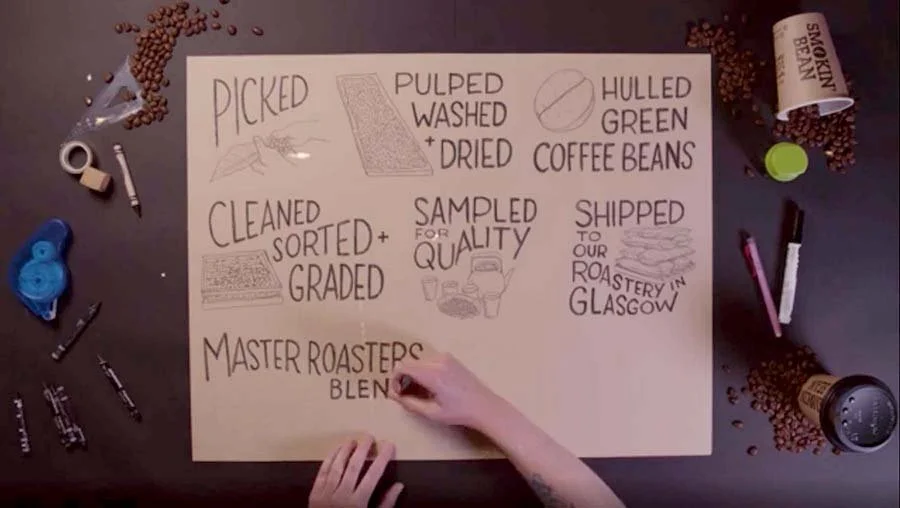 PICKED
PULPED
WASHED
+ DRIED
HULLED
GREEN
COFFEE BEANS
CLEANED
SORTED +
GRADED
SAMPLED
FOR
QUALITY
SHIPPED
TO
OUR
ROASTERY IN
GLASGOW
MASTER ROASTERS
BLEN
SMOKIN'
BEAN